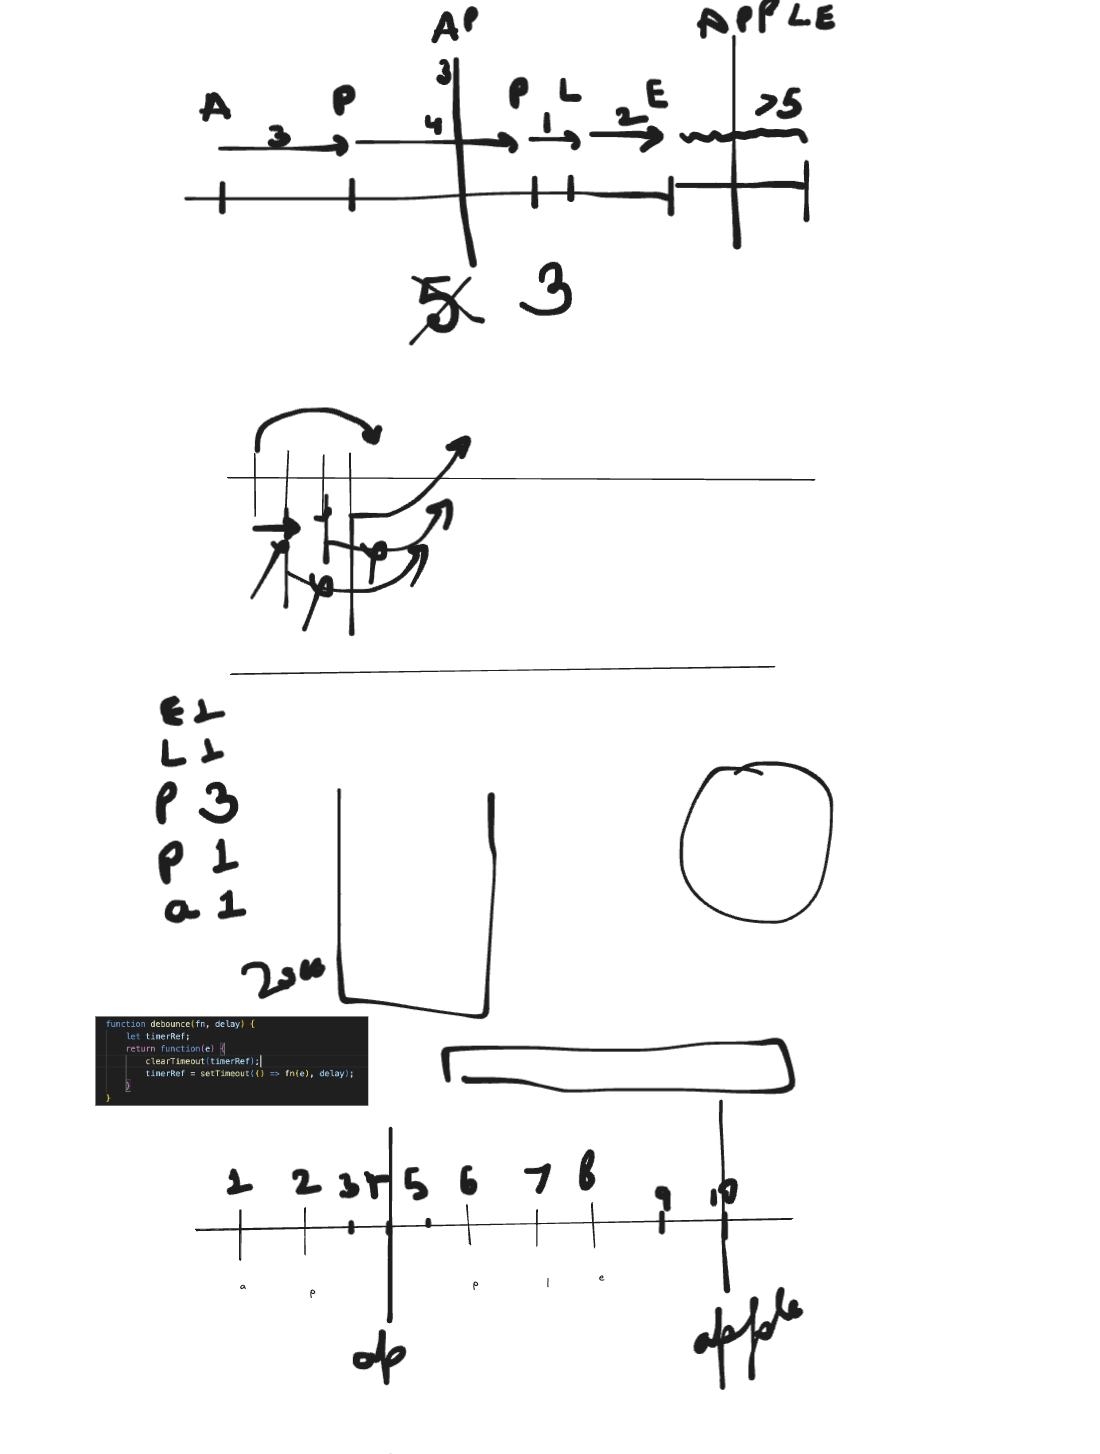 AP
APPLE
3
A P 4 P L E >5
3 1 2
5 3
E 1
L 1
P 3
P 1
a 1
function debounce(fn, delay) {
let timerRef;
return function(e) {
clearTimeout(timerRef);
timerRef = setTimeout(() => fn(e), delay);
}
}
1 2 3 4 5 6 7 8 9 10
a p p l e
ap
apple